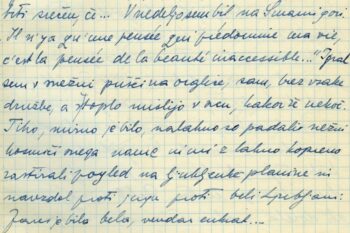 biti srečen, če... V nedeljo sem bil na Šmarni gori.
Il n'y a qu'une pensée qui prédomine ma vie,
c'est la pensée de la beauté inaccessible..." Igral
sem v mežni pušči na orglice, sam, brez vsake
družbe, a s toplo mislijo v srcu, kakor že nekoč.
Tiho, mirno je bilo, nalahno so padale nežni
kosmiči snega name in mi z lahno kopreno
zastirali pogled na ljubljenke planine in
navzdol proti jugu proti beli Ljubljani.
Zares je bila bela, vendar enkrat...